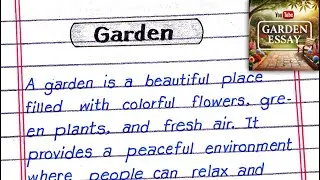 Garden
YouTube
GARDEN
ESSAY
A garden is a beautiful place
filled with colorful flowers, gre-
en plants, and fresh air. It
provides a peaceful environment
where people can relax and